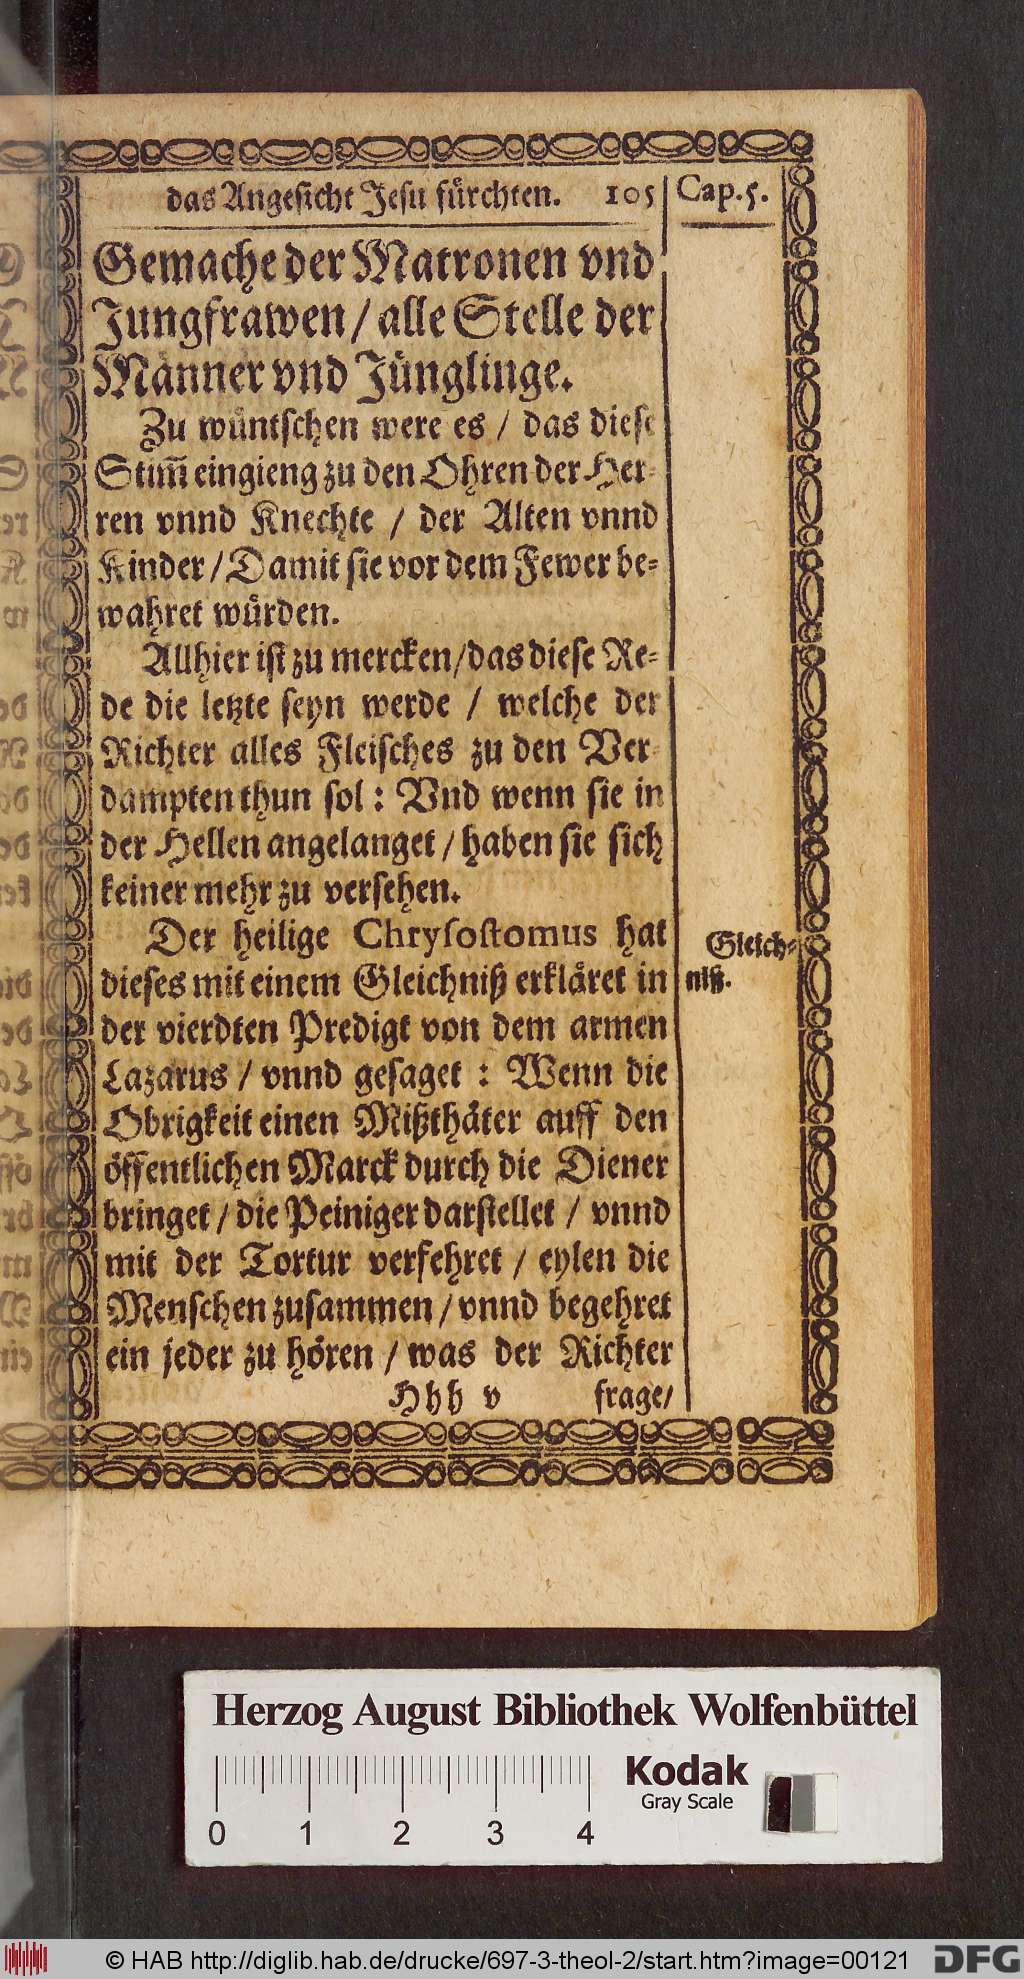 das Angesicht Jesu fürchten. 105 Cap. 5.
Gemache der Matronen vnd
Jungfrawen / alle Stelle der
Männer vnd Jünglinge.
Zu wüntschen were es / das diese
Stim̃ eingieng zu den Ohren der Her-
ren vnnd Knechte / der Alten vnnd
Kinder / Damit sie vor dem Fewer be-
wahret würden.
Allhier ist zu mercken / das diese Re-
de die letzte seyn werde / welche der
Richter alles Fleisches zu den Ver-
dampten thun sol : Vnd wenn sie in
der Hellen angelanget / haben sie sich
keiner mehr zu versehen.
Der heilige Chrysostomus hat
dieses mit einem Gleichniß erkläret in
der vierdten Predigt von dem armen
Lazarus / vnnd gesaget : Wenn die
Obrigkeit einen Mißthäter auff den
öffentlichen Marck durch die Diener
bringet / die Peiniger darstellet / vnnd
mit der Tortur verfehret / eylen die
Menschen zusammen / vnnd begehret
ein jeder zu hören / was der Richter
Hhh v frage/
Gleich-
niß.
Herzog August Bibliothek Wolfenbüttel
Kodak
Gray Scale
0 1 2 3 4
© HAB http://diglib.hab.de/drucke/697-3-theol-2/start.htm?image=00121
DFG